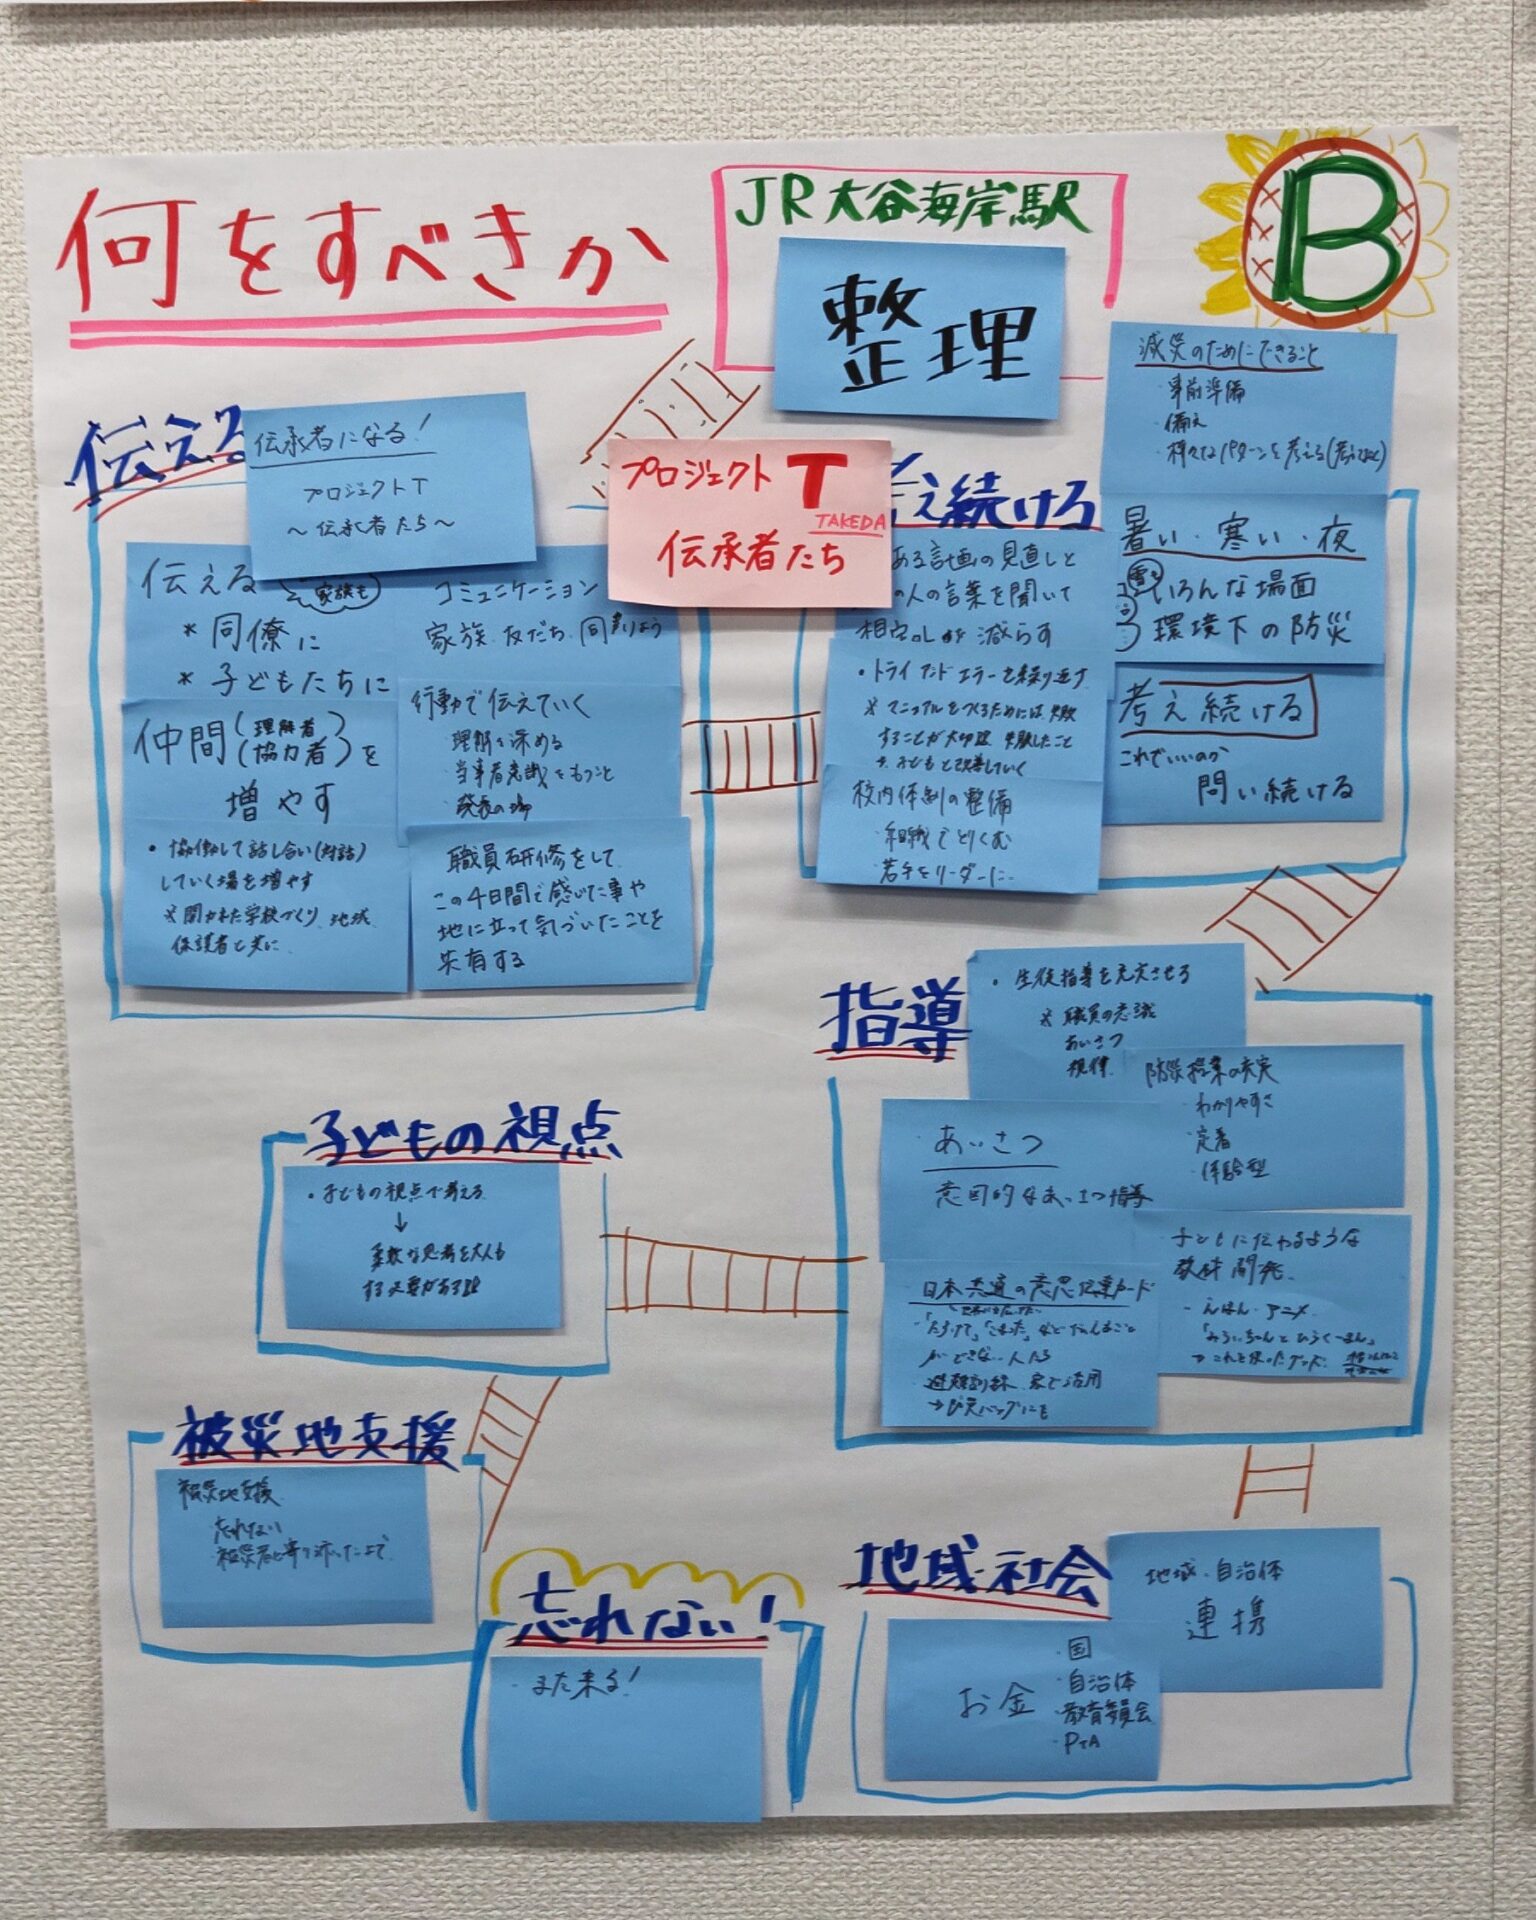 何をすべきか
JR大谷海岸駅
整理
B
減災のためにできること
・事前準備
・備え
・様々なパターンを考える
伝える
伝承者になる!
プロジェクトT
～伝承者たち～
プロジェクトT
TAKEDA
伝承者たち
伝える
家族も
*同僚に
*子どもたちに
コミュニケーション
家族、友だち、同
仲間(理解者 協力者)を
増やす
行動で伝えていく
・理解を深める
・当事者意識をもつこと
・発表の場
・協働して話し合い(対話)
していく場を増やす
※開かれた学校づくり、地域
保護者と共に
職員研修をして
この4日間で感じた事や
地に立って気づいたことを
共有する
え続けろ
ある計画の見直しと
の人の言葉を聞いて
減らす
・トライアンドエラーを繰り返す
※マニュアルをつくるためには、失敗
することが大切
改善していく
校内体制の整備
・組織でとりくむ
・若手をリーダーに
暑い・寒い・夜
いろんな場面
環境下の防災
考え続ける
これでいいのか
問い続ける
指導
・生徒指導を充実させろ
※職員の意識
あいさつ
規律
防災授業の充実
・わかりやすさ
・定着
・体験型
・あいさつ
意図的なあいさつ指導
日本共通の意思伝達カード
・「たすけて」「こまった」など
ができない人たち
・避難訓練、家で活用
子どもに伝わるような
教材開発
・えほん・アニメ
子どもの視点
・子どもの視点で考える
↓
柔軟な思考を大人も
する必要がある
被災地支援
被災地支援
・忘れない
忘れない!
・また来る!
地域・社会
地域・自治体
連携
お金
・国
・自治体
・教育委員会
・PTA